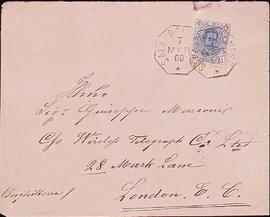 SALA BOL
7
MAR
00
Illmo
Sigr Guiseppe Marconi
C/o Wireless Telegraph Co: Ltd
28 Mark Lane
London. E. C.
(Inghilterra)